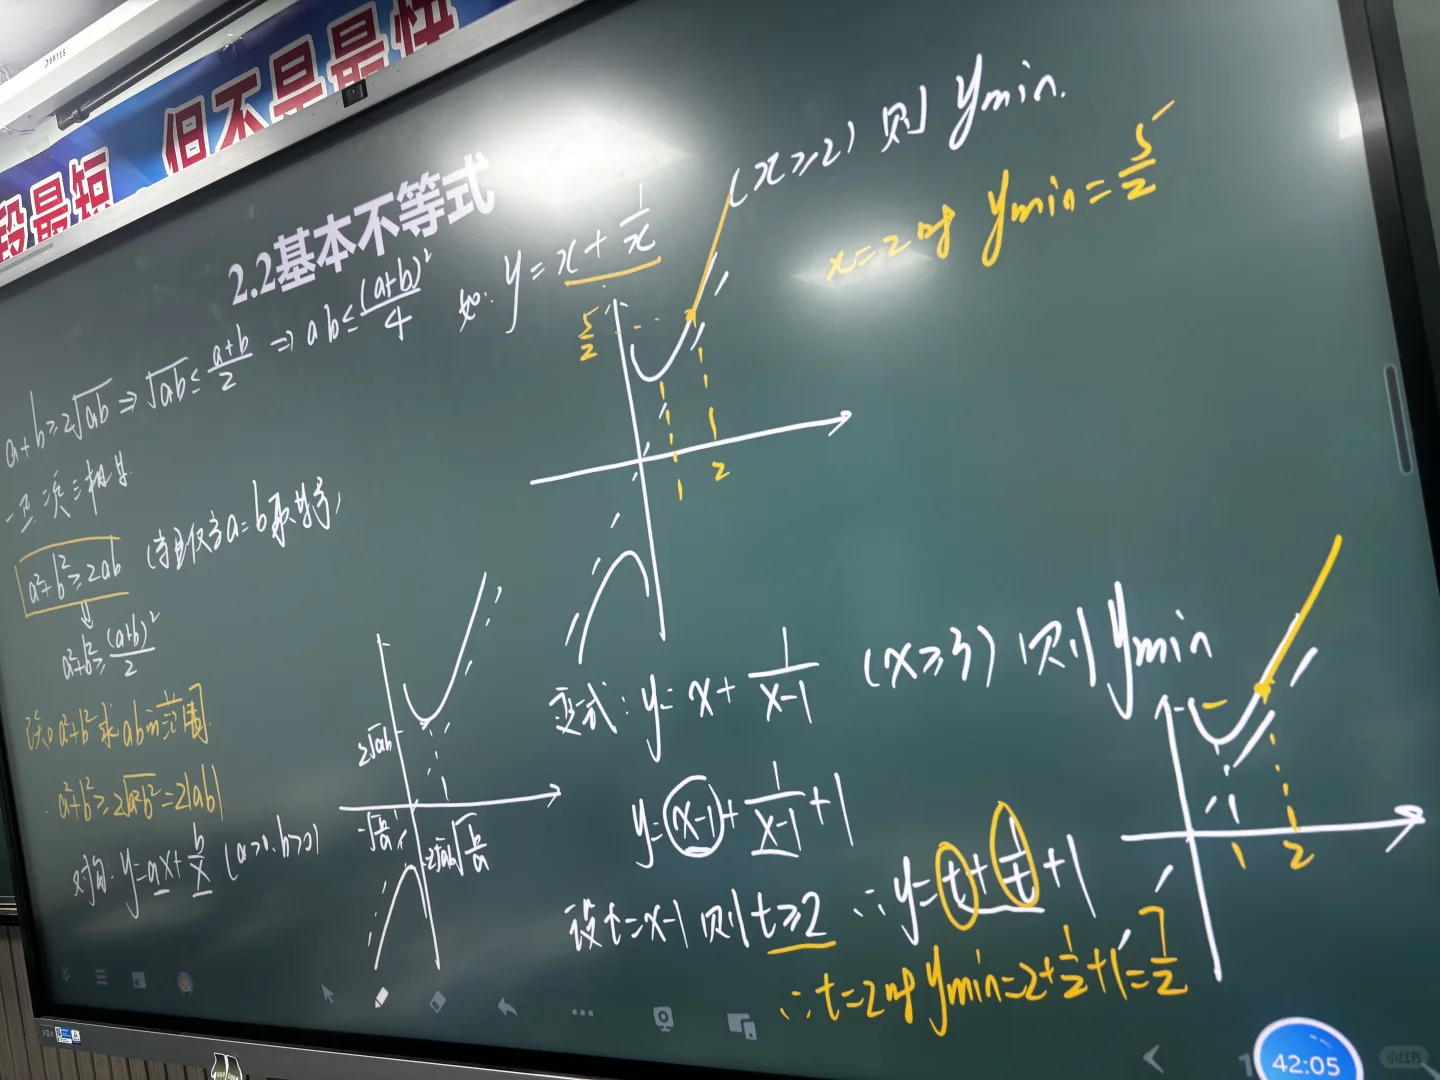 DONVES
段最短 但不是最快
2.2基本不等式
a+b≥2√ab ⇒ √ab ≤ (a+b)/2 ⇒ ab ≤ (a+b)²/4
一正二定三相等
a²+b²≥2ab (当且仅当a=b取等号)
⇓
a²+b²≥(a+b)²/2
已知a²+b²求ab的范围
a²+b²≥2√a²b²=2|ab|
对勾: y=ax+b/x (a>0,b>0)
2√ab
-√b/a
√b/a
-2√ab
如: y=x+1/x (x≥2) 则 ymin.
x=2时 ymin=5/2
5/2
1 2
变式: y=x+1/(x-1) (x≥3) 则 ymin
y=(x-1)+1/(x-1)+1
设t=x-1 则 t≥2 ∴ y=t+1/t+1
∴ t=2时 ymin=2+1/2+1=7/2
1 2
42:05
小红书